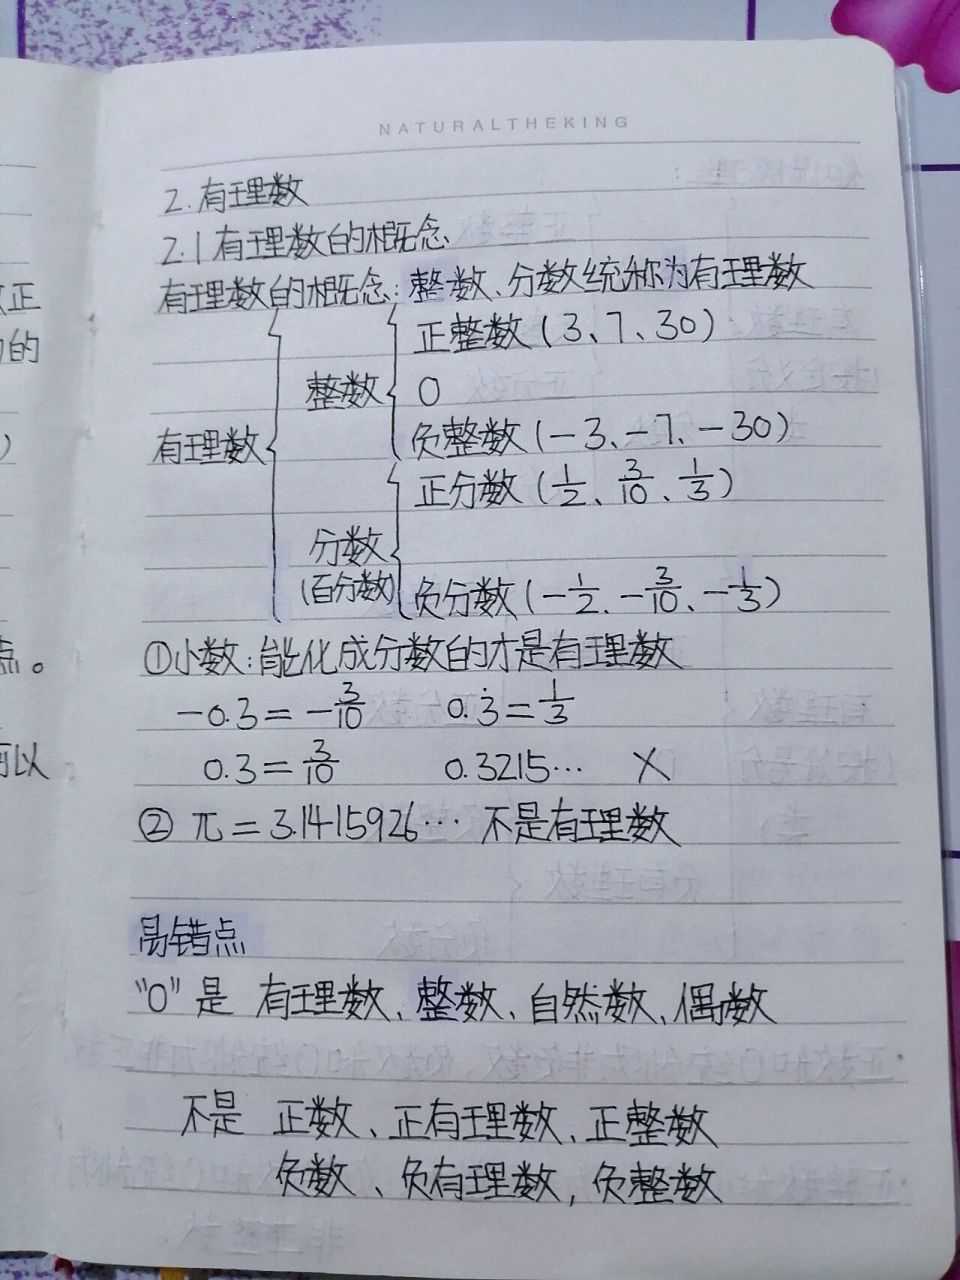 NATURALTHEKING
2.有理数
2.1有理数的概念
有理数的概念:整数、分数统称为有理数
正整数(3、7、30)
整数
0
有理数
负整数(-3、-7、-30)
正分数(1/2、3/10、1/3)
分数
(百分数)
负分数(-1/2、-3/10、-1/3)
①小数:能化成分数的才是有理数
-0.3=-3/10 0.3̇=1/3
0.3=3/10 0.3215… ×
②π=3.1415926… 不是有理数
易错点
"0"是 有理数、整数、自然数、偶数
不是 正数、正有理数、正整数
负数、负有理数,负整数
正
的
)
点。
可以